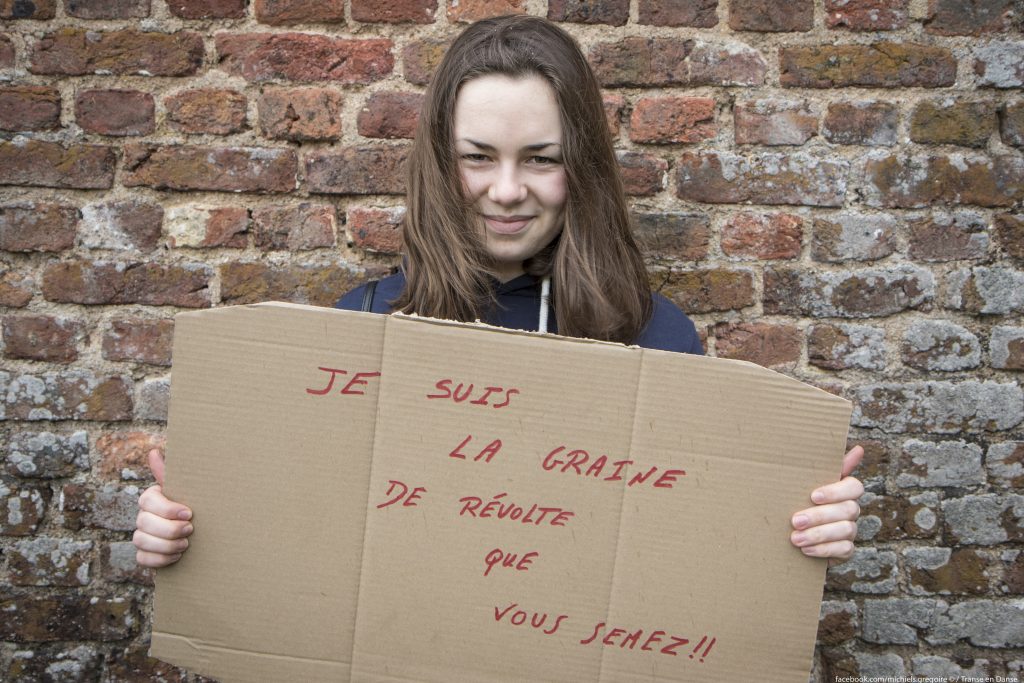 JE SUIS
LA GRAINE
DE RÉVOLTE
QUE
VOUS SEMEZ!!
facebook.com/michiels.gregoire © / Transe en Danse